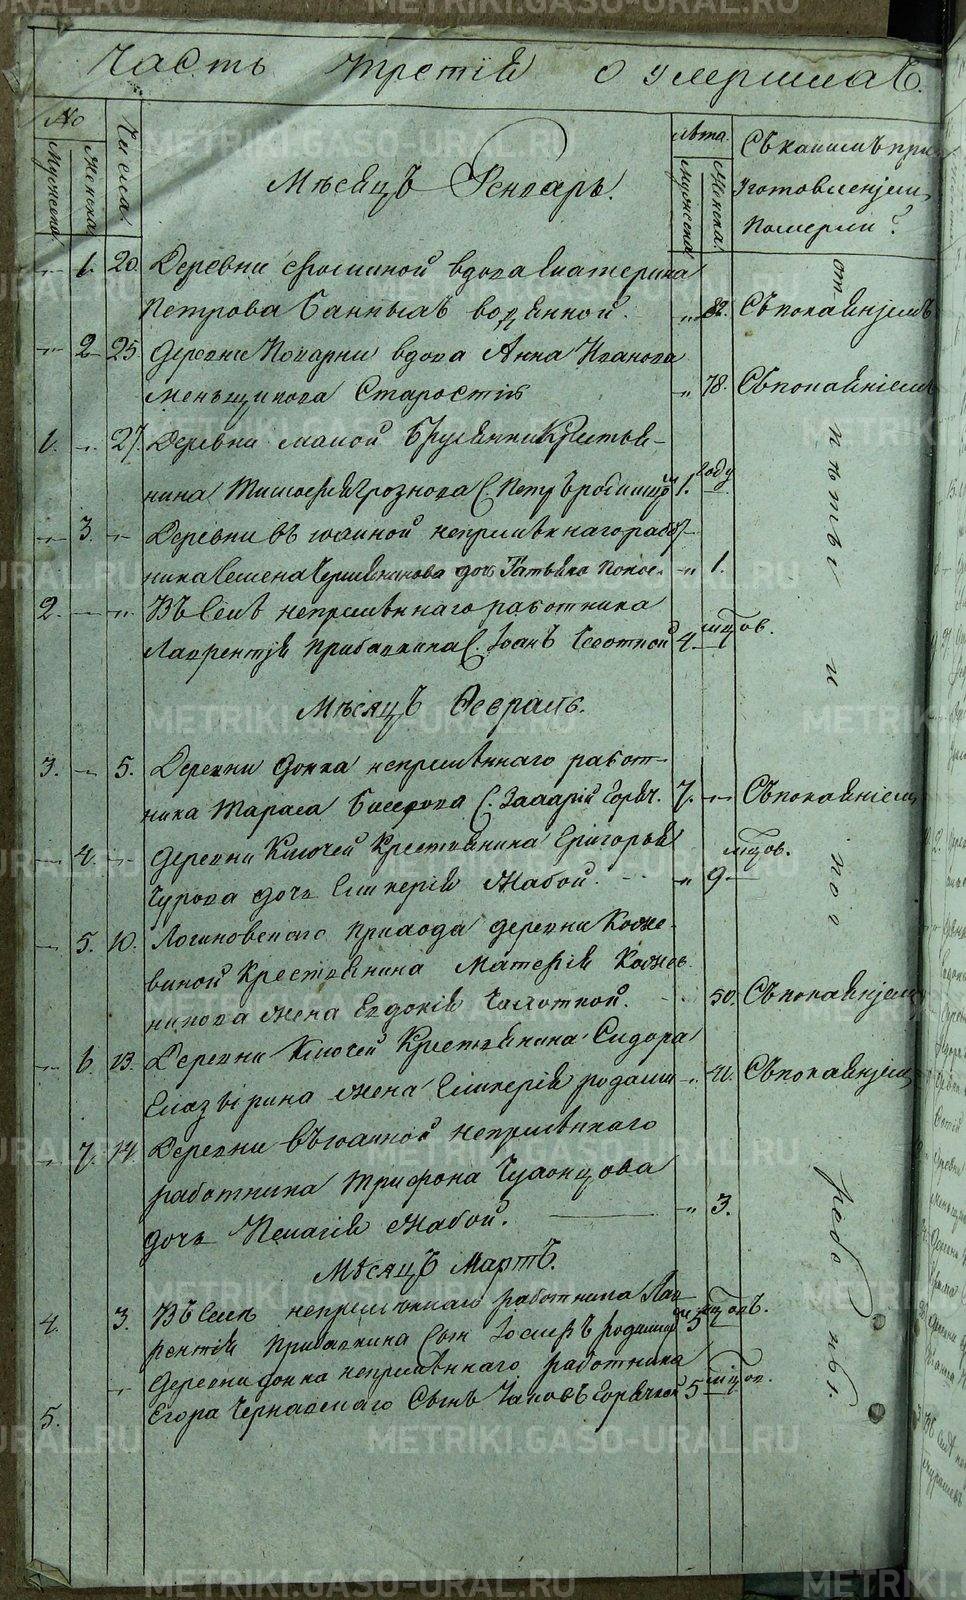 Часть третія о умершихъ.
№
Мужеска
Женска
Числа
Мѣсяцъ Генварь.
лѣта.
Мужеска
Женска.
Съ какимъ при-
уготовленіем
Померли?
1. 20. Деревни Фоминой вдова Екатерина
Петрова Банныхъ водянной. 82. Съ покаянiемъ
2 25 Деревни Поварни вдова Анна Иванова
Меньщикова Старостію 78. Съ покаяніемъ
1. 27. Деревни малой Брусянки Крестья-
нина Тимофея Грознова С. Петръ родимцо 1. году
3. Деревни въюхиной непремѣннаго работ-
ника Семена дочь Татьяна Понос. 1.
2. Въ Селѣ непремѣннаго работника
Лаврентія Прибавкина С. Іоанъ Чахоткой 4 мцов.
Мѣсяцъ Февраль.
3. 5. Деревни Фомка непремѣннаго работ-
ника Тараса Бисерова С. Захарій Горяч. 7. Съ покаяніем
4. Деревни Ключей Крестьянина Григорья
Чурова дочь Гликерія Жабой. 9 мцов.
5. 10. Логиновскаго Прихода деревни Коже-
виной Крестьянина Матфея Кожев
никова жена Евдокія Чахоткой. 50. Съ покаянiем
6. 13. Деревни Ключей Крестьянина Сидора
Глазырина жена Гликерія родами 41. Съ покаянiем
7. 14. Деревни Въюхиной непремѣннаго
работника Трифона Чудонцова
дочь Пелагія Жабой. 3.
Мѣсяцъ Мартъ.
4. 3. Въ Селѣ непремѣннаго работника Лав
рентія Прибавкина Сын Іосифъ родимц 5 мцовъ.
Деревни непремѣннаго работника
5. Егора Чернавскаго Сынъ Іаковъ Горячкой 5 мцов.
от
пѣты и
по
гребены.
METRIKI.GASO-URAL.RU